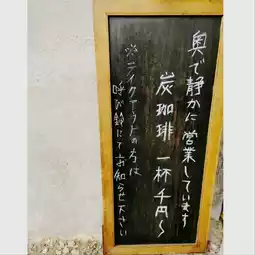 奥で静かに営業しています
炭珈琲 一杯 千円〜
※テイクアウトの方は
呼び鈴にてお知らせ下さい